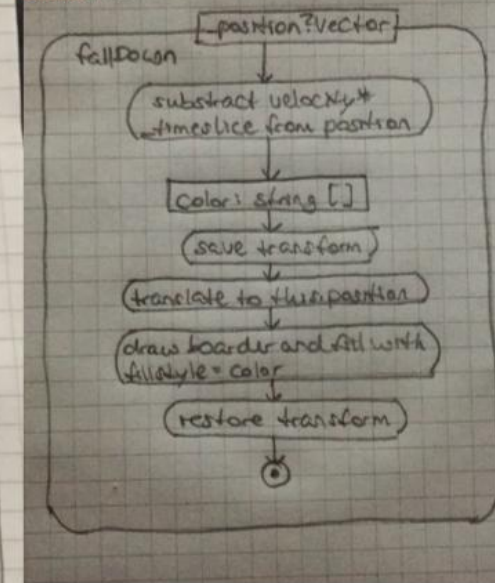 _position?Vector
fallDown
substract velocity*
_timeslice from position
color: string []
save transform
translate to this.position
draw boarder and fill with
fillstyle = color
restore transform